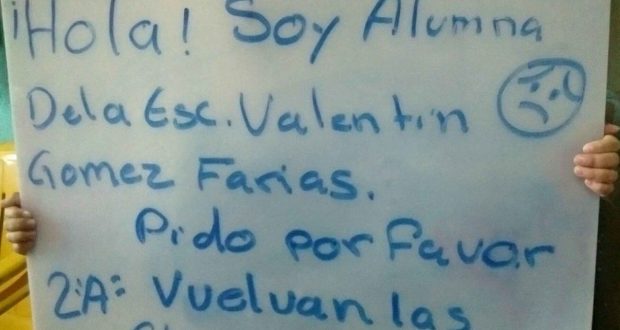 ¡Hola! Soy Alumna
De la Esc. Valentin
Gomez Farias.
Pido por favor
2:A: Vuelvan las